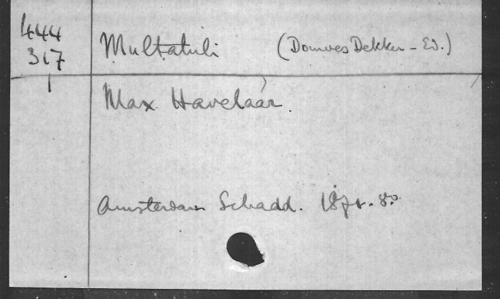 444 Multatuli (Douwes Dekker - Ed.)
317
Max Havelaar.
Amsterdam Schadd. 8°